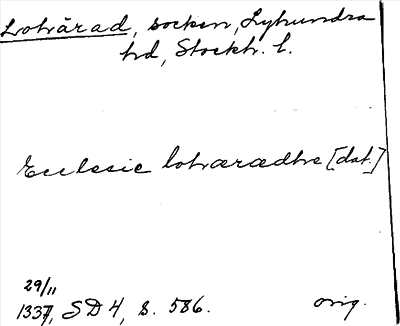 Lohärad, socken, Lyhundra
hd, Stockh. l.
Ecclesie lohærædhe [dat.]
29/11
1337, SD 4, s. 586. orig.